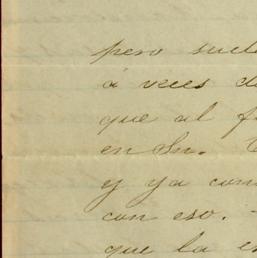 pero suel
á veces d
que al f
en Sn.
y ya com
con eso. -
que la es